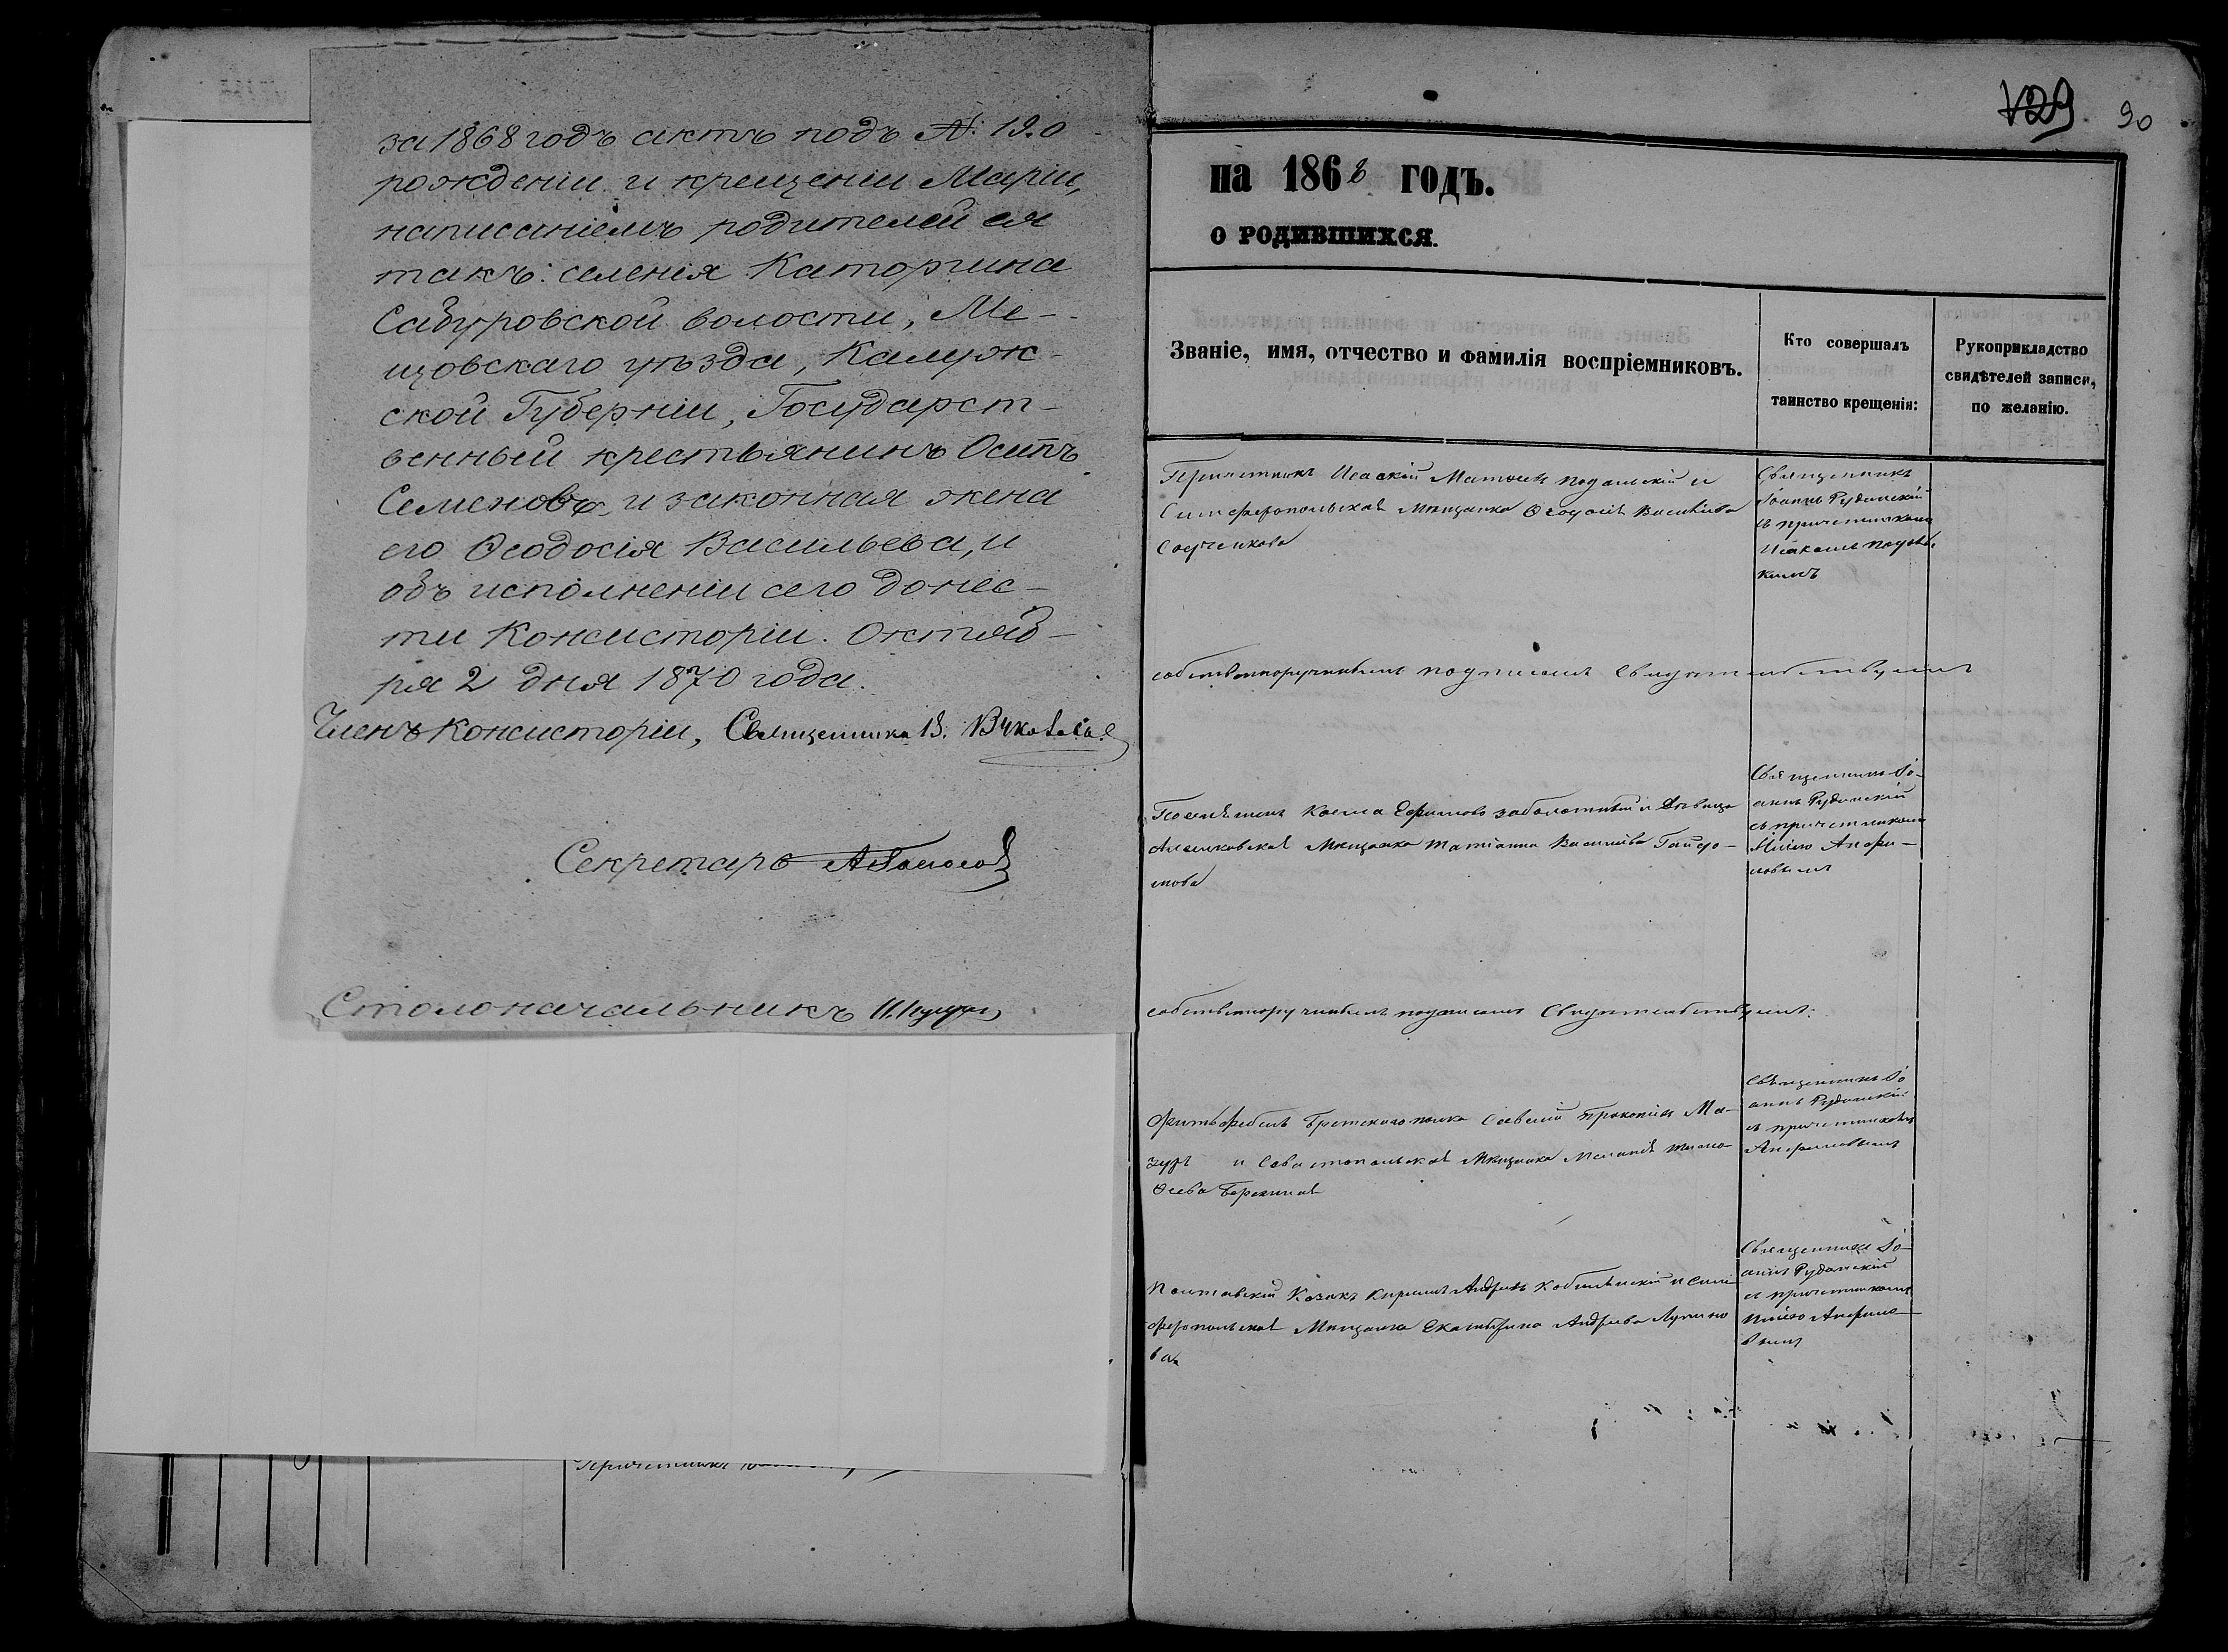 за 1868 годъ актъ подъ №: 19. о
рожденіи и крещеніи Маріи,
написаніемъ родителей ея
такъ: селенія Каторгина
Сабуровской волости, Ме-
щовскаго уѣзда, Калуж-
ской Губерніи, Государст-
венный крестьянинъ Осипъ
Семеновъ и законная жена
его Ѳеодосія Васильева, и
объ исполненіи сего донес-
ти Консисторіи. Октяб-
ря 2 дня 1870 года.
Членъ Консисторіи, Священникъ В.
Секретарь
Столоначальникъ
129 90
на 1868 годъ.
о родившихся.
Званіе, имя, отчество и фамилія воспріемниковъ.
Кто совершалъ
таинство крещенія:
Рукоприкладство
свидѣтелей записи,
по желанію.
Причетникъ Исаакій Матѳеевъ Подольскій и
Симферопольская Мѣщанка Ѳеодосія Васильева
Священникъ
Іоаннъ Руданскій
съ причетникомъ
собственноручнымъ подписомъ свидѣтельствуемъ
Косма Ефимовъ Заболотный и Дѣвица
Мѣщанка Татіанна Васильева
Священникъ Іо-
аннъ Руданскій
съ причетникомъ
собственноручнымъ подписомъ свидѣтельствуемъ:
Фельдфебель Брестскаго полка Савелій Прокопіевъ Ма-
зуръ и Севастопольская Мѣщанка Меланія Тимо-
ѳеева
Священникъ Іо
аннъ Руданскій
съ причетникомъ
Полтавскій Козакъ Кириллъ Андреевъ Кобылинскій и Сим-
феропольская Мѣщанка Екатерина Андреева
ва
Священникъ Іо-
аннъ Руданскій
съ причетникомъ
Причетникъ